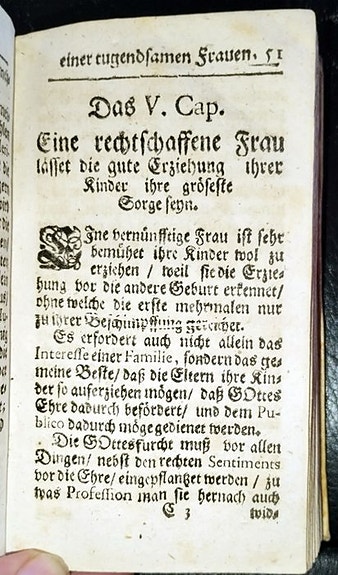 einer tugendsamen Frauen. 51
Das V. Cap.
Eine rechtschaffene Frau
lässet die gute Erziehung ihrer
Kinder ihre gröseste
Sorge seyn.
EJne vernünfftige Frau ist sehr
bemühet ihre Kinder wol zu
erziehen / weil sie die Erzie-
hung vor die andere Geburt erkennet /
ohne welche die erste mehrmalen nur
zu ihrer Beschimpffung gereichet.
Es erfordert auch nicht allein das
Interesse einer Familie, sondern das ge-
meine Beste / daß die Eltern ihre Kin-
der so auferziehen mögen / daß GOttes
Ehre dadurch befördert / und dem Pu-
blico dadurch möge gedienet werden.
Die GOttesfurcht muß vor allen
Dingen / nebst den rechten Sentiments
vor die Ehre / eingepflantzet werden / zu
was Profession man sie hernach auch
C 3 wid-